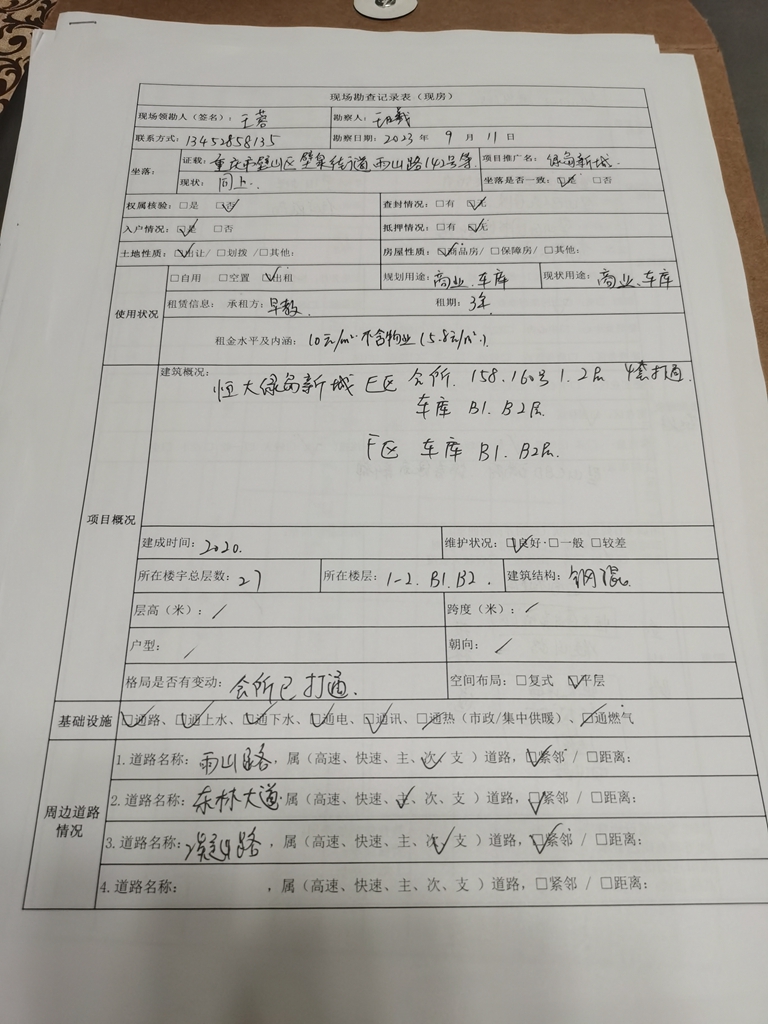 现场勘查记录表（现房）
现场领勘人（签名）：王蓉 勘察人：
联系方式：13452858135 勘察日期：2023年 9 月 11 日
坐落： 证载：重庆市璧山区璧泉街道雨山路142号等 项目推广名：绿岛新城
现状：同上. 坐落是否一致：☑是 □否
权属核验：□是 ☑否 查封情况：□有 ☑无
入户情况：☑是 □否 抵押情况：□有 ☑无
土地性质：☑出让/ □划拨 /□其他: 房屋性质：☑商品房/ □保障房/ □其他:
使用状况 □自用 □空置 ☑出租 规划用途：商业、车库 现状用途：商业、车库
租赁信息： 承租方：早教. 租期：3年
租金水平及内涵：10元/m² 不含物业（5.8元/m²）.
项目概况 建筑概况：恒大绿岛新城 E区 会所. 158.160号 1.2层 4套打通.
车库 B1. B2层.
F区 车库 B1. B2层.
建成时间：2020. 维护状况：☑良好·□一般 □较差
所在楼宇总层数：27 所在楼层：1-2. B1. B2. 建筑结构：钢混.
层高（米）：/ 跨度（米）：/
户型： / 朝向： /
格局是否有变动：会所已打通. 空间布局：□复式 ☑平层
基础设施 ☑通路、☑通上水、☑通下水、☑通电、☑通讯、□通热（市政/集中供暖）、☑通燃气
周边道路情况 1.道路名称：雨山路，属（高速、快速、主、次✓、支 ）道路，☑紧邻 / □距离:
2.道路名称：东林大道 属（高速、快速、主✓、次、支 ）道路，☑紧邻 / □距离:
3.道路名称： 路 ，属（高速、快速、主、次✓、支 ）道路，☑紧邻 / □距离:
4.道路名称： ，属（高速、快速、主、次、支 ）道路，□紧邻 / □距离: